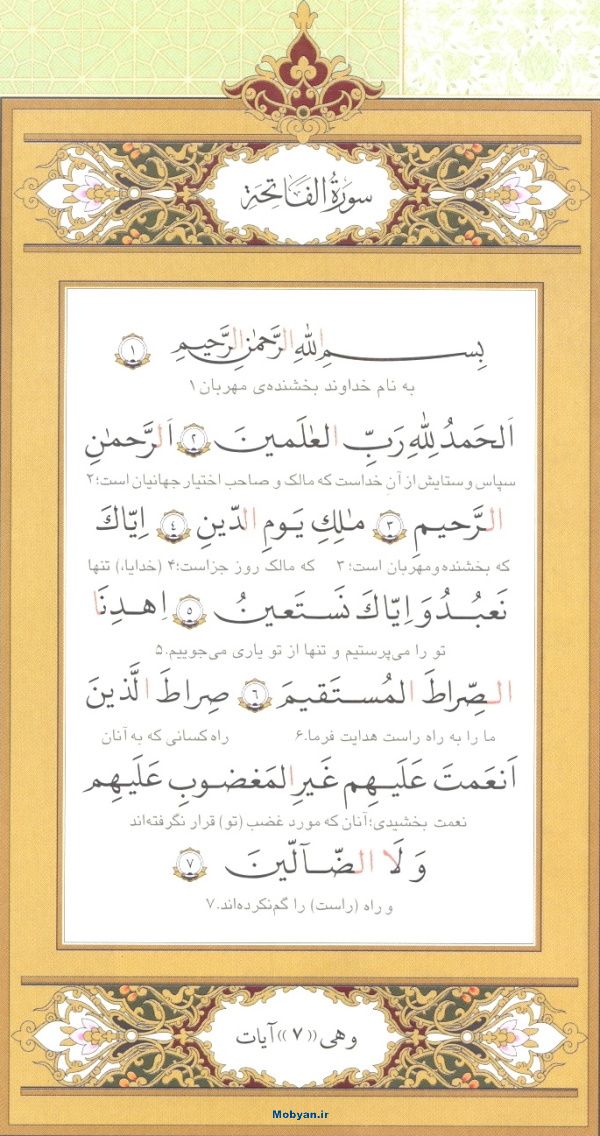 سورة الفاتحة
بِسمِ اللهِ الرَّحمٰنِ الرَّحیمِ ١
به نام خداوند بخشنده‌ی مهربان ١
اَلحَمدُ لِلّٰهِ رَبِّ العٰلَمینَ ٢ اَلرَّحمٰنِ
سپاس و ستایش از آن خداست که مالک و صاحب اختیار جهانیان است؛ ٢
الرَّحیمِ ٣ مٰلِكِ یَومِ الدّینِ ٤ اِیّاكَ
که بخشنده و مهربان است؛ ٣ که مالک روز جزاست؛ ۴ (خدایا،) تنها
نَعبُدُ وَ اِیّاكَ نَستَعینُ ٥ اِهدِنَا
تو را می‌پرستیم و تنها از تو یاری می‌جوییم. ۵
الصِّراطَ المُستَقیمَ ٦ صِراطَ الَّذینَ
ما را به راه راست هدایت فرما. ۶ راه کسانی که به آنان
اَنعَمتَ عَلَیهِم غَیرِ المَغضوبِ عَلَیهِم
نعمت بخشیدی؛ آنان که مورد غضب (تو) قرار نگرفته‌اند
وَ لَا الضّآلّینَ ٧
و راه (راست) را گم نکرده‌اند. ٧
وهی «٧» آیات
Mobyan.ir